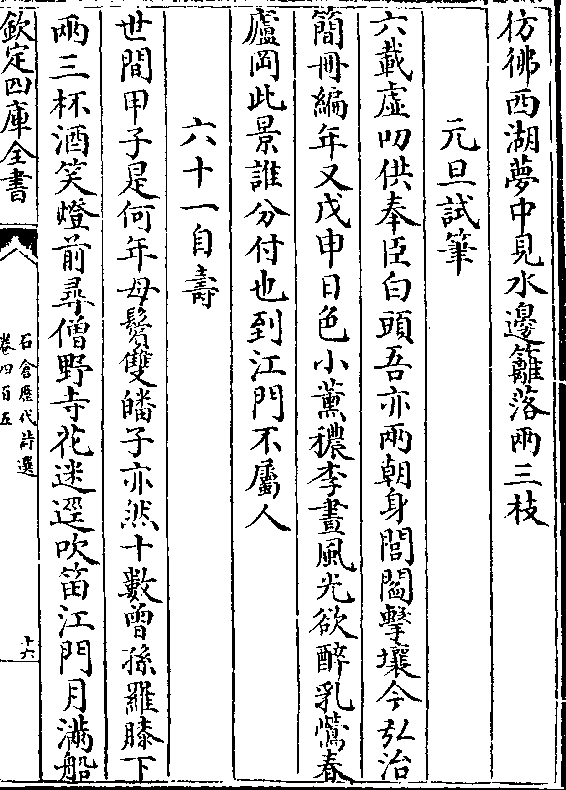 彷彿西湖夢中見水邊籬落兩三枝
元旦試筆
六載虛叨供奉臣白頭吾亦兩朝身閭閻擊壤今弘治
簡冊編年又戊申日色小薰穠李晝風光欲醉乳鶯春
廬岡此景誰分付也到江門不屬人
六十一自壽
世間甲子是何年母鬢雙皤子亦然十數曾孫羅膝下
兩三杯酒笑燈前尋僧野寺花迷逕吹笛江門月滿船
欽定四庫全書
石倉歷代詩選
卷四百五
十六